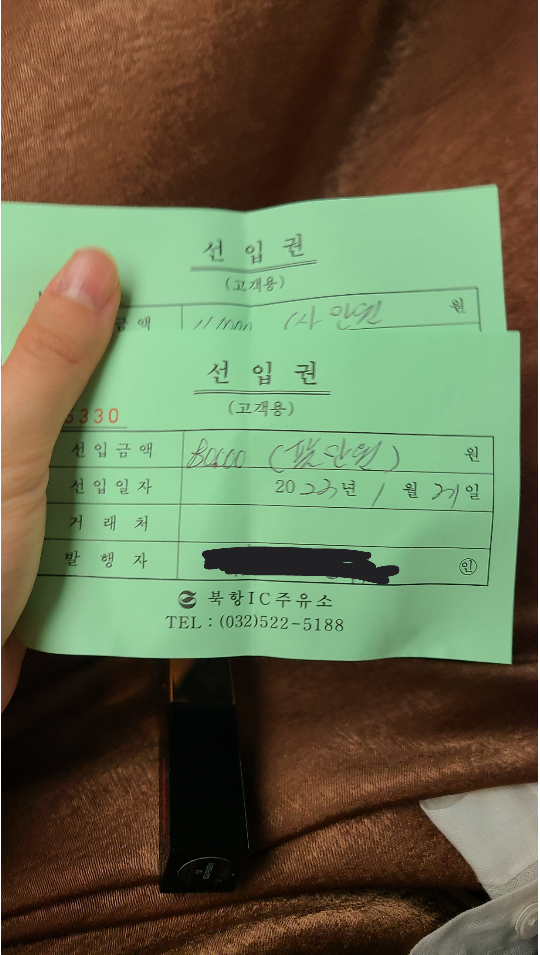 선입권
(고객용)
금액 (사만원 원
선입권
(고객용)
330
선입금액 80000 (팔만원) 원
선입일자 2023년 1월 21일
거래처
발행자 인
북항IC주유소
TEL : (032)522-5188